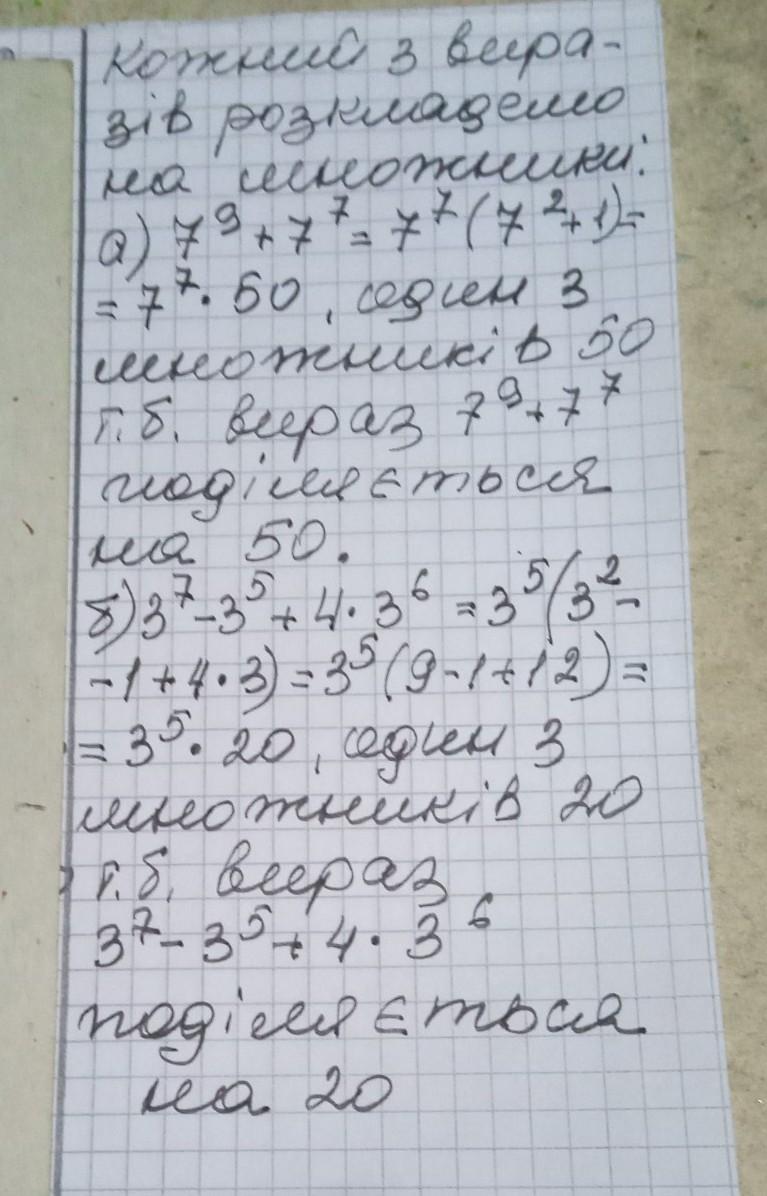 Кожний з вира-
зів розкладемо
на множники:
а) 7⁹ + 7⁷ = 7⁷(7² + 1) =
= 7⁷ · 50, один з
множників 50
т.б. вираз 7⁹ + 7⁷
поділяється
на 50.
б) 3⁷ - 3⁵ + 4 · 3⁶ = 3⁵(3² -
- 1 + 4 · 3) = 3⁵(9 - 1 + 12) =
= 3⁵ · 20, один з
множників 20
т.б. вираз
3⁷ - 3⁵ + 4 · 3⁶
поділяється
на 20